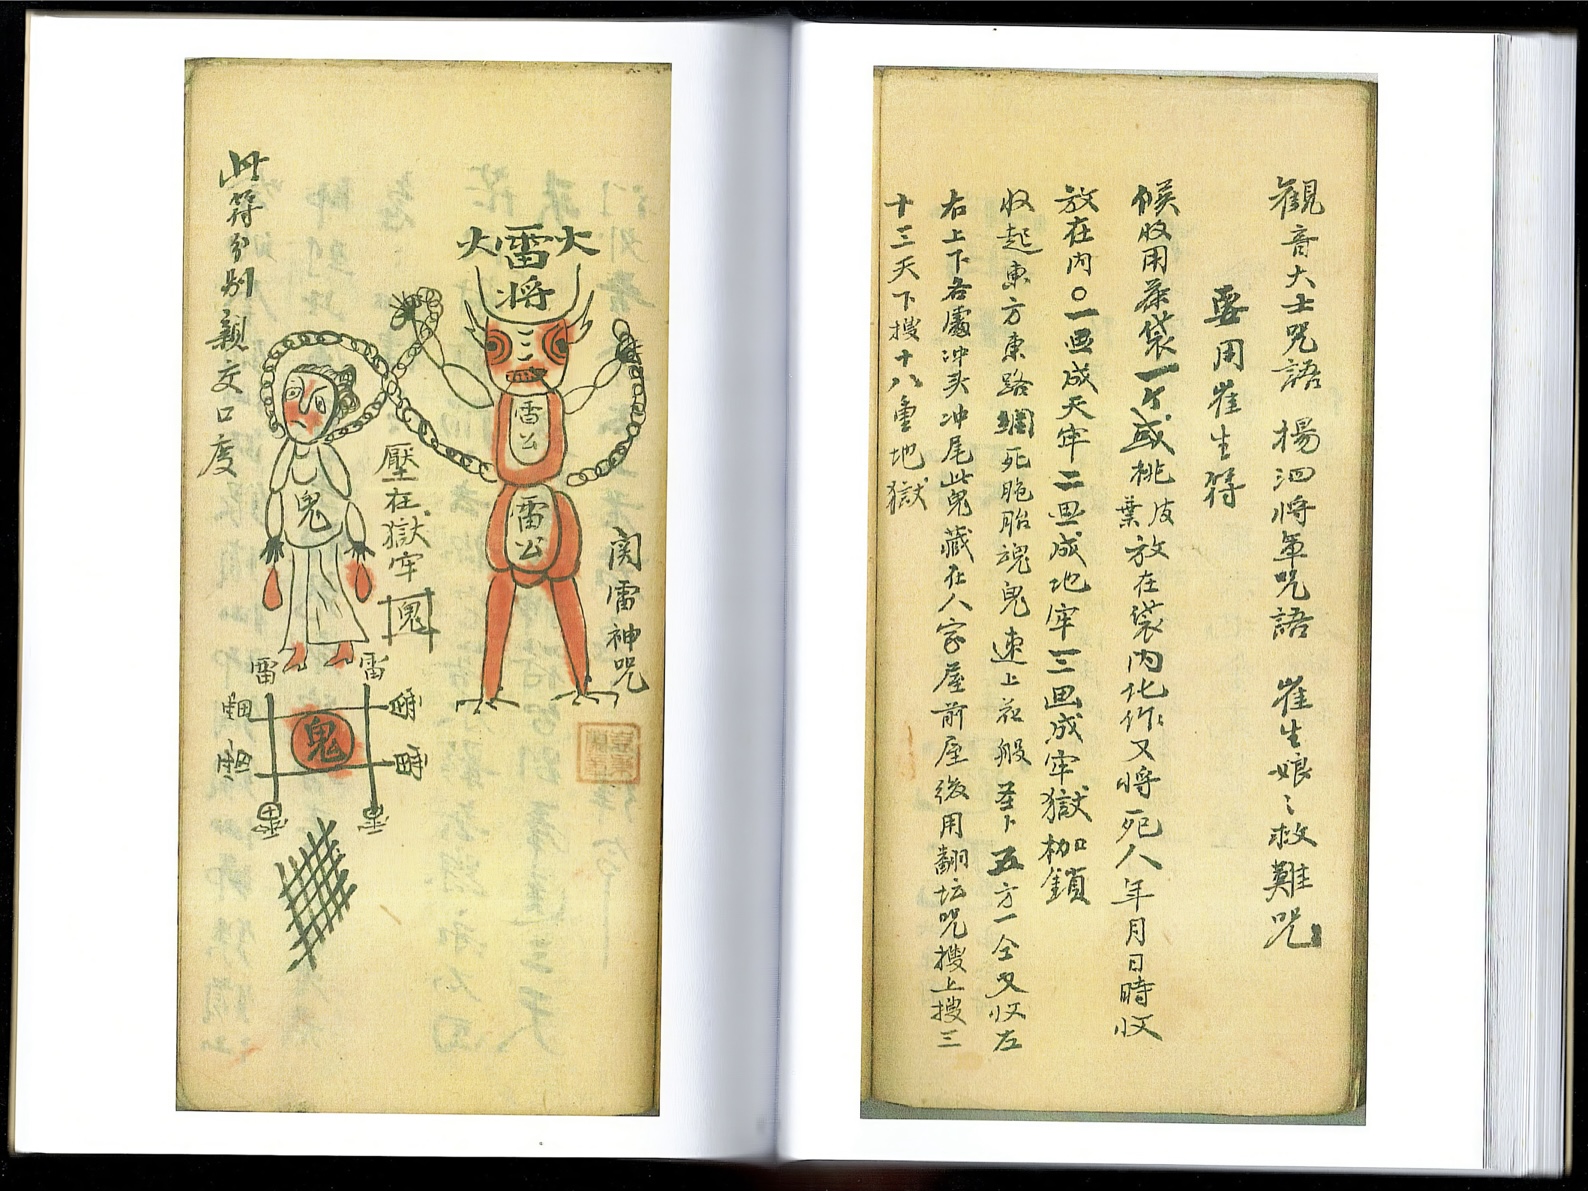 觀音大士咒語 楊泗將軍咒語 崔生娘〻救難咒
要用崔生符
候收用茶袋一个或桃皮葉放在袋內化作又将死人年月日時收
放在内〇一画成天牢二画成地牢三画成牢獄枷鎖
收起東方東路綢死胞胎魂鬼速上花船 五方一仝又收左
右上下各處冲头冲尾此鬼藏在人家屋前屋後用翻坛咒搜上搜三
十三天下搜十八重地獄
関雷神咒
火雷火
将
雷公
雷公
壓在獄牢
鬼
鬼
雷
雷
鬼
此符分别親交口度